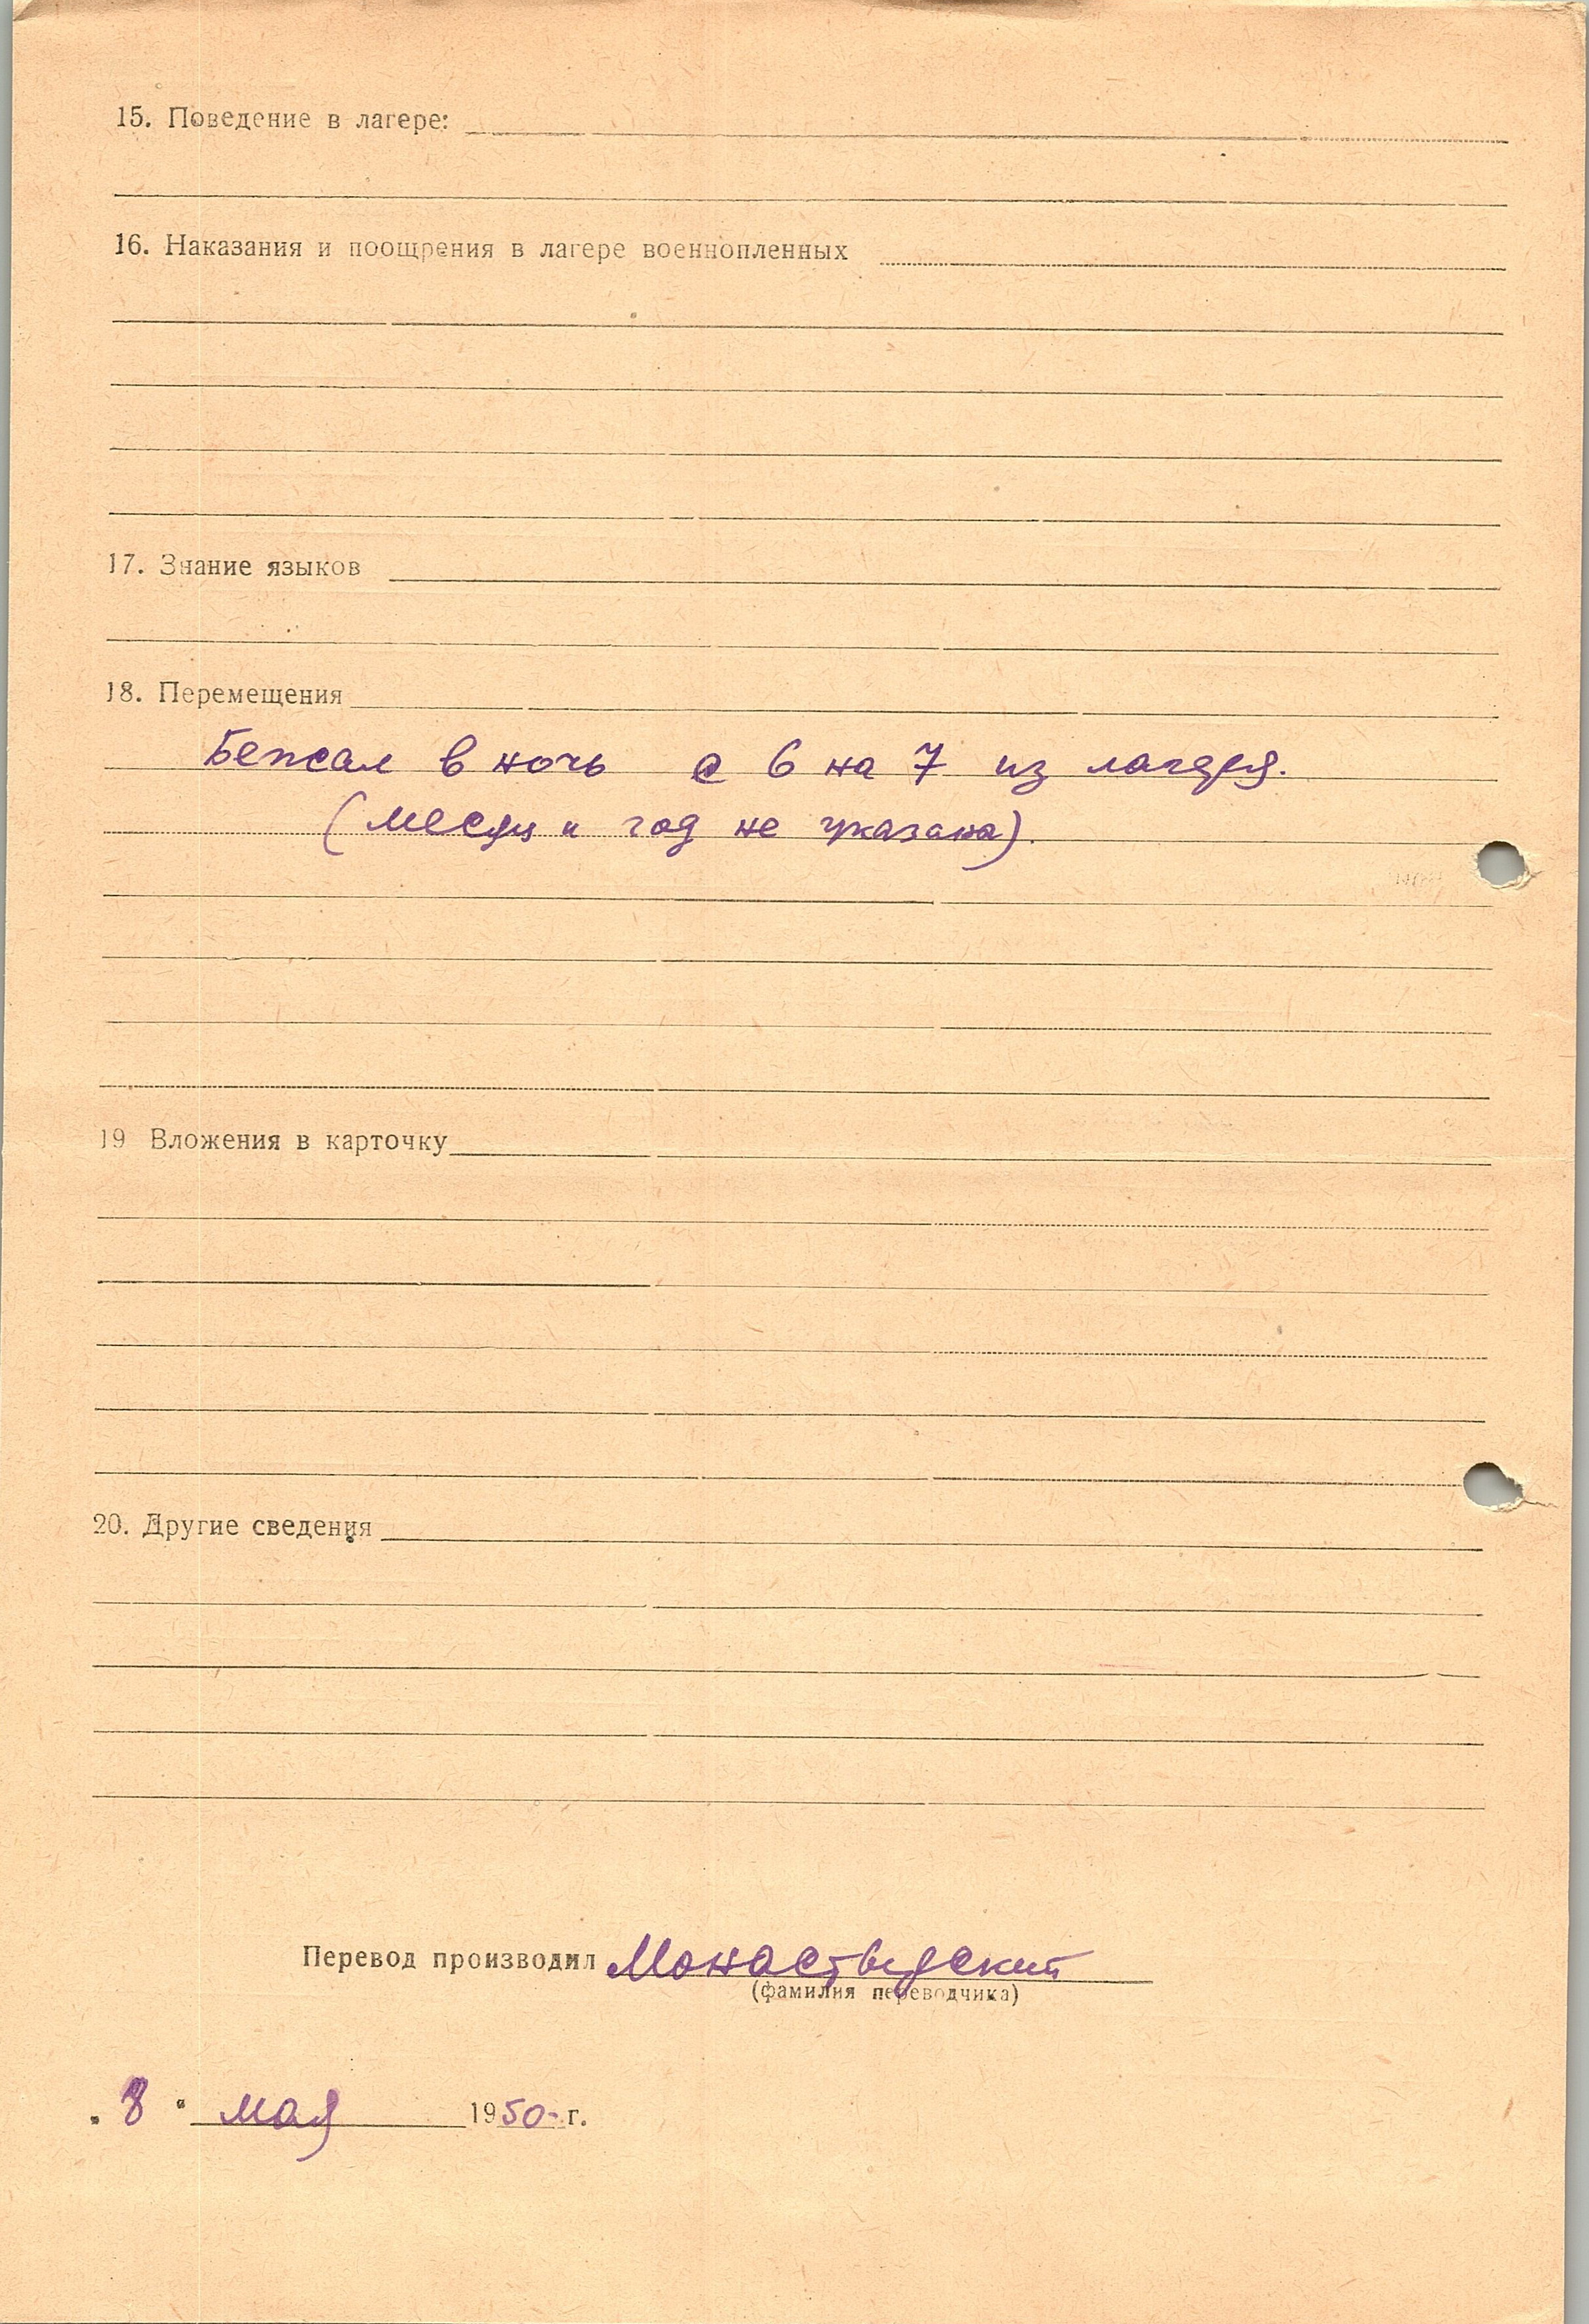 15. Поведение в лагере:
16. Наказания и поощрения в лагере военнопленных
17. Знание языков
18. Перемещения
Бежал в ночь с 6 на 7 из лагеря.
(месяц и год не указана).
19 Вложения в карточку
20. Другие сведения
Перевод производил Монастырский
(фамилия переводчика)
„8" мая 1950-г.